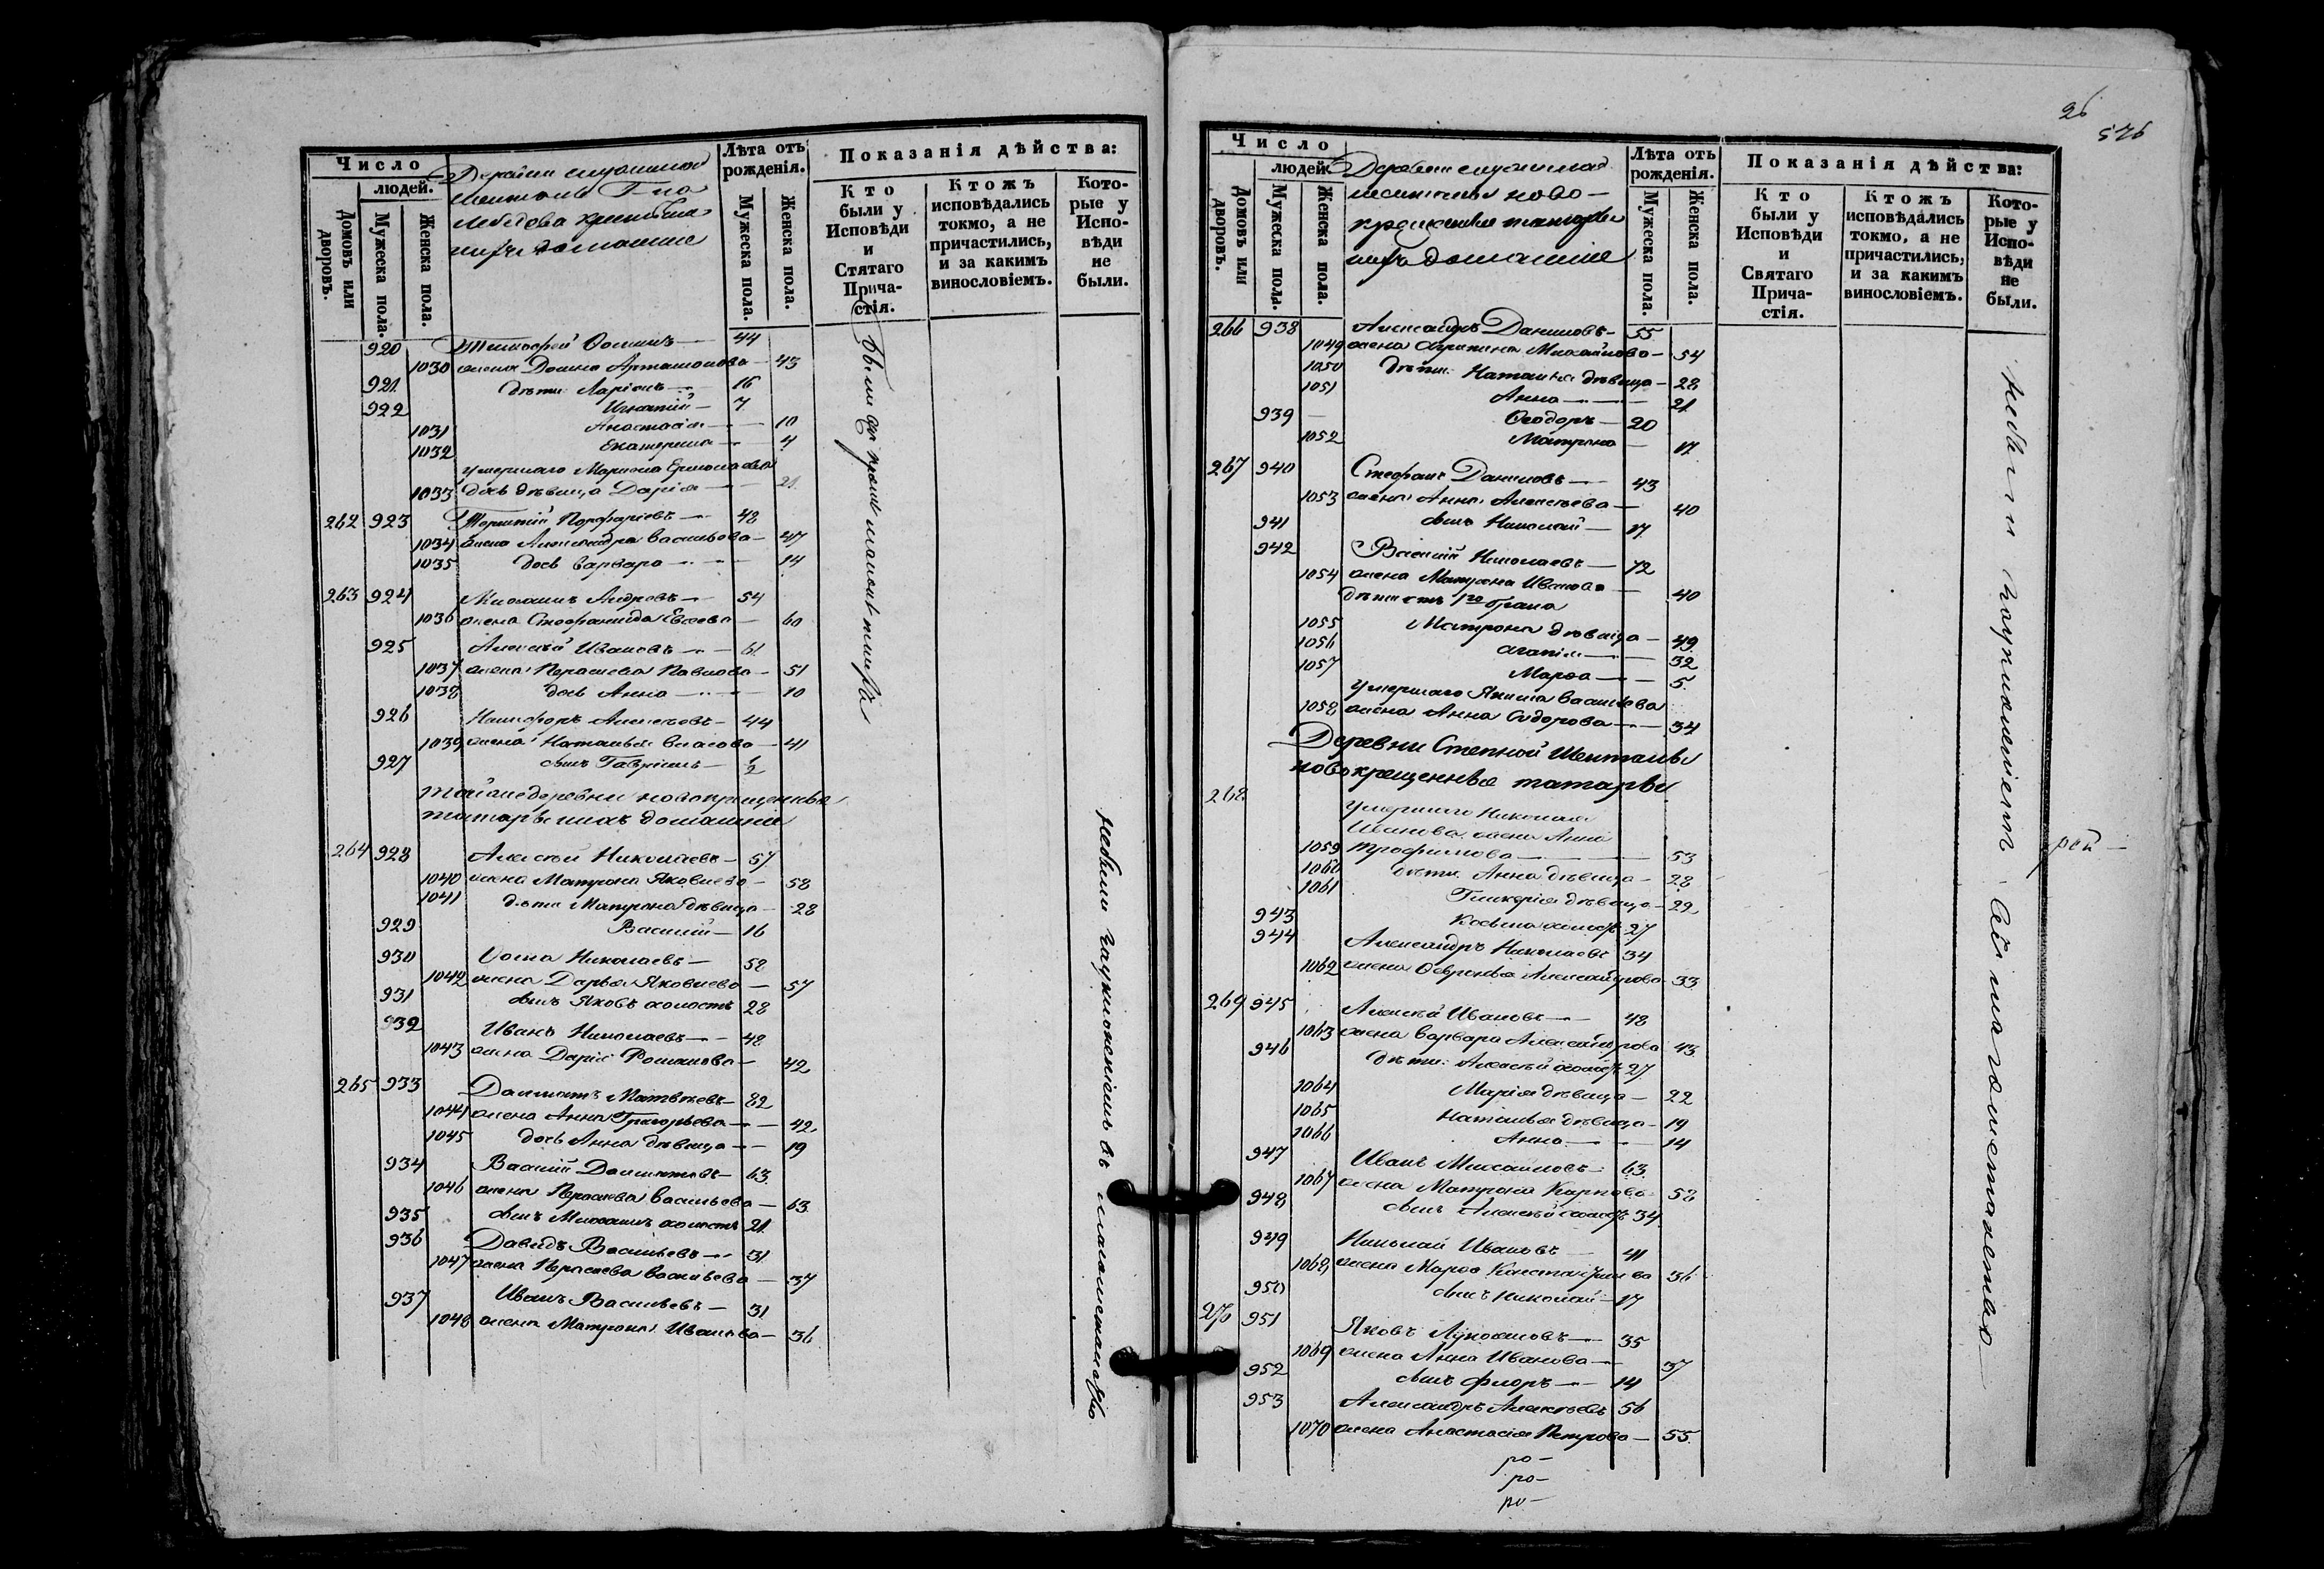 Число
людей.
Домовъ или дворовъ.
Мужеска пола.
Женска пола.
Деревни
крестьяне
ихъ домашніе
Лѣта отъ рожденія.
Мужеска пола.
Женска пола.
Показанія дѣйства:
Кто были у Исповѣди и Стятаго Прича-стія.
Ктожъ исповѣдались токмо, а не причастились, и за какимъ винословіемъ.
Кото-рые у Испо-вѣди не были.
920 Тимофей 44
1030 жена Домна Артамонова 43
921 дѣти Ларіонъ 16
922 Игнатій 7
1031 Анастасія 10
1032 Екатерина 4
умершаго
1033 дочь дѣвица Дарія 21
262 923 Порфиріевъ 48
1034 жена Александра Васильева 47
1035 дочь Варвара 14
263 924 Андреевъ 54
1036 жена Стефанида 60
925 Алексѣй Ивановъ 61
1037 жена Параскева Павлова 51
1038 дочь Анна 10
926 Никифоръ Алексѣевъ 44
1039 жена Наталья Власова 41
927 сынъ Гавріилъ 1/2
Тойже деревни новокрещенные
татары и ихъ домашніе
264 928 Алексѣй Николаевъ 57
1040 жена Матрона Яковлева 58
1041 дѣти Матрона дѣвица 28
929 Василій 16
930 Николаевъ 58
1042 жена Дарья Яковлева 57
931 сынъ Яковъ холостъ 28
932 Иванъ Николаевъ 48
1043 жена Дарія Романова 42
265 933 Матвѣевъ 82
1044 жена Анна Григорьева 42
1045 дочь Анна дѣвица 19
934 Василій 63
1046 жена Параскева Васильева 63
935 сынъ холостъ 21
936 Давидъ Васильевъ 31
1047 жена Параскева Васильева 37
937 Иванъ Васильевъ 31
1048 жена Матрона Иванова 36
Были
Небыли
26
526
Число
людей.
Домовъ или дворовъ.
Мужеска пола.
Женска пола.
Деревни
ново-
крещенные татары
ихъ домашніе
Лѣта отъ рожденія.
Мужеска пола.
Женска пола.
Показанія дѣйства:
Кто были у Исповѣди и Святаго Прича-стія.
Ктожъ исповѣдались токмо, а не причастились, и за какимъ винословіемъ.
Кото-рые у Испо-вѣди не были.
266 938 Александръ Даниловъ 55
1049 жена Агрипина Михайлова 54
1050 дѣти Наталья дѣвица 28
1051 Анна 21
939 Ѳеодоръ 20
1052 Матрона 17
267 940 Стефанъ Даниловъ 43
1053 жена Анна Алексѣева 40
941 сынъ Николай 17
942 Василій Николаевъ 72
1054 жена Матрона Иванова 40
дѣти отъ 1го брака
1055 Матрона дѣвица 49
1056 Агапія 32
1057 Марѳа 5
умершаго Якима Васильева
1058 жена Анна Сидорова 34
Деревни Степной Шенталы
новокрещенные татары
268 умершаго Николая
Иванова жена Анна
1059 Трофимова 53
1060 дѣти Анна дѣвица 28
1061 Гликерія дѣвица 22
943 Косьма холостъ 27
944 Александръ Николаевъ 34
1062 жена Александрова 33
269 945 Алексѣй Ивановъ 48
1063 жена Варвара Александрова 43
946 дѣти Алексѣй холостъ 27
1064 Марія дѣвица 22
1065 Наталья дѣвица 19
1066 Анна 14
947 Иванъ Михайловъ 63
1067 жена Матрона Карпова 58
948 сынъ Алексѣй холостъ 34
949 Николай Ивановъ 41
1068 жена Марѳа Константинова 36
950 сынъ Николай 17
270 951 Яковъ 35
1069 жена Анна Иванова 37
952 сынъ Флоръ 14
953 Александръ Алексѣевъ 56
1070 жена Анастасія Петрова 55
ро-
ро-
ро-
Небыли
рой